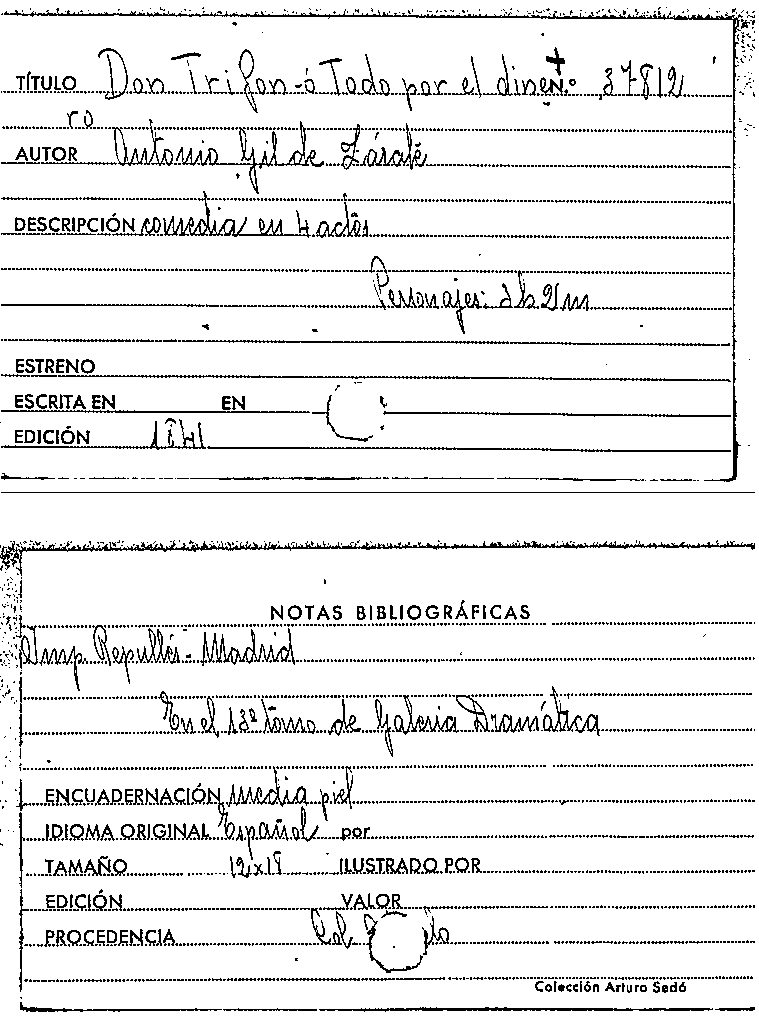 TÍTULO Don Trifon-ó Todo por el dine N.º 37812
ro
AUTOR Antonio Gil de Zárate
DESCRIPCIÓN comedia en 4 actos
Personajes: 3h 2m
ESTRENO
ESCRITA EN EN
EDICIÓN 1841
NOTAS BIBLIOGRÁFICAS
Imp. Repullés - Madrid
En el 13º tomo de Galeria Dramática
ENCUADERNACIÓN media piel
IDIOMA ORIGINAL Español por
TAMAÑO 12x18 ILUSTRADO POR
EDICIÓN VALOR
PROCEDENCIA Col
Colección Arturo Sedó